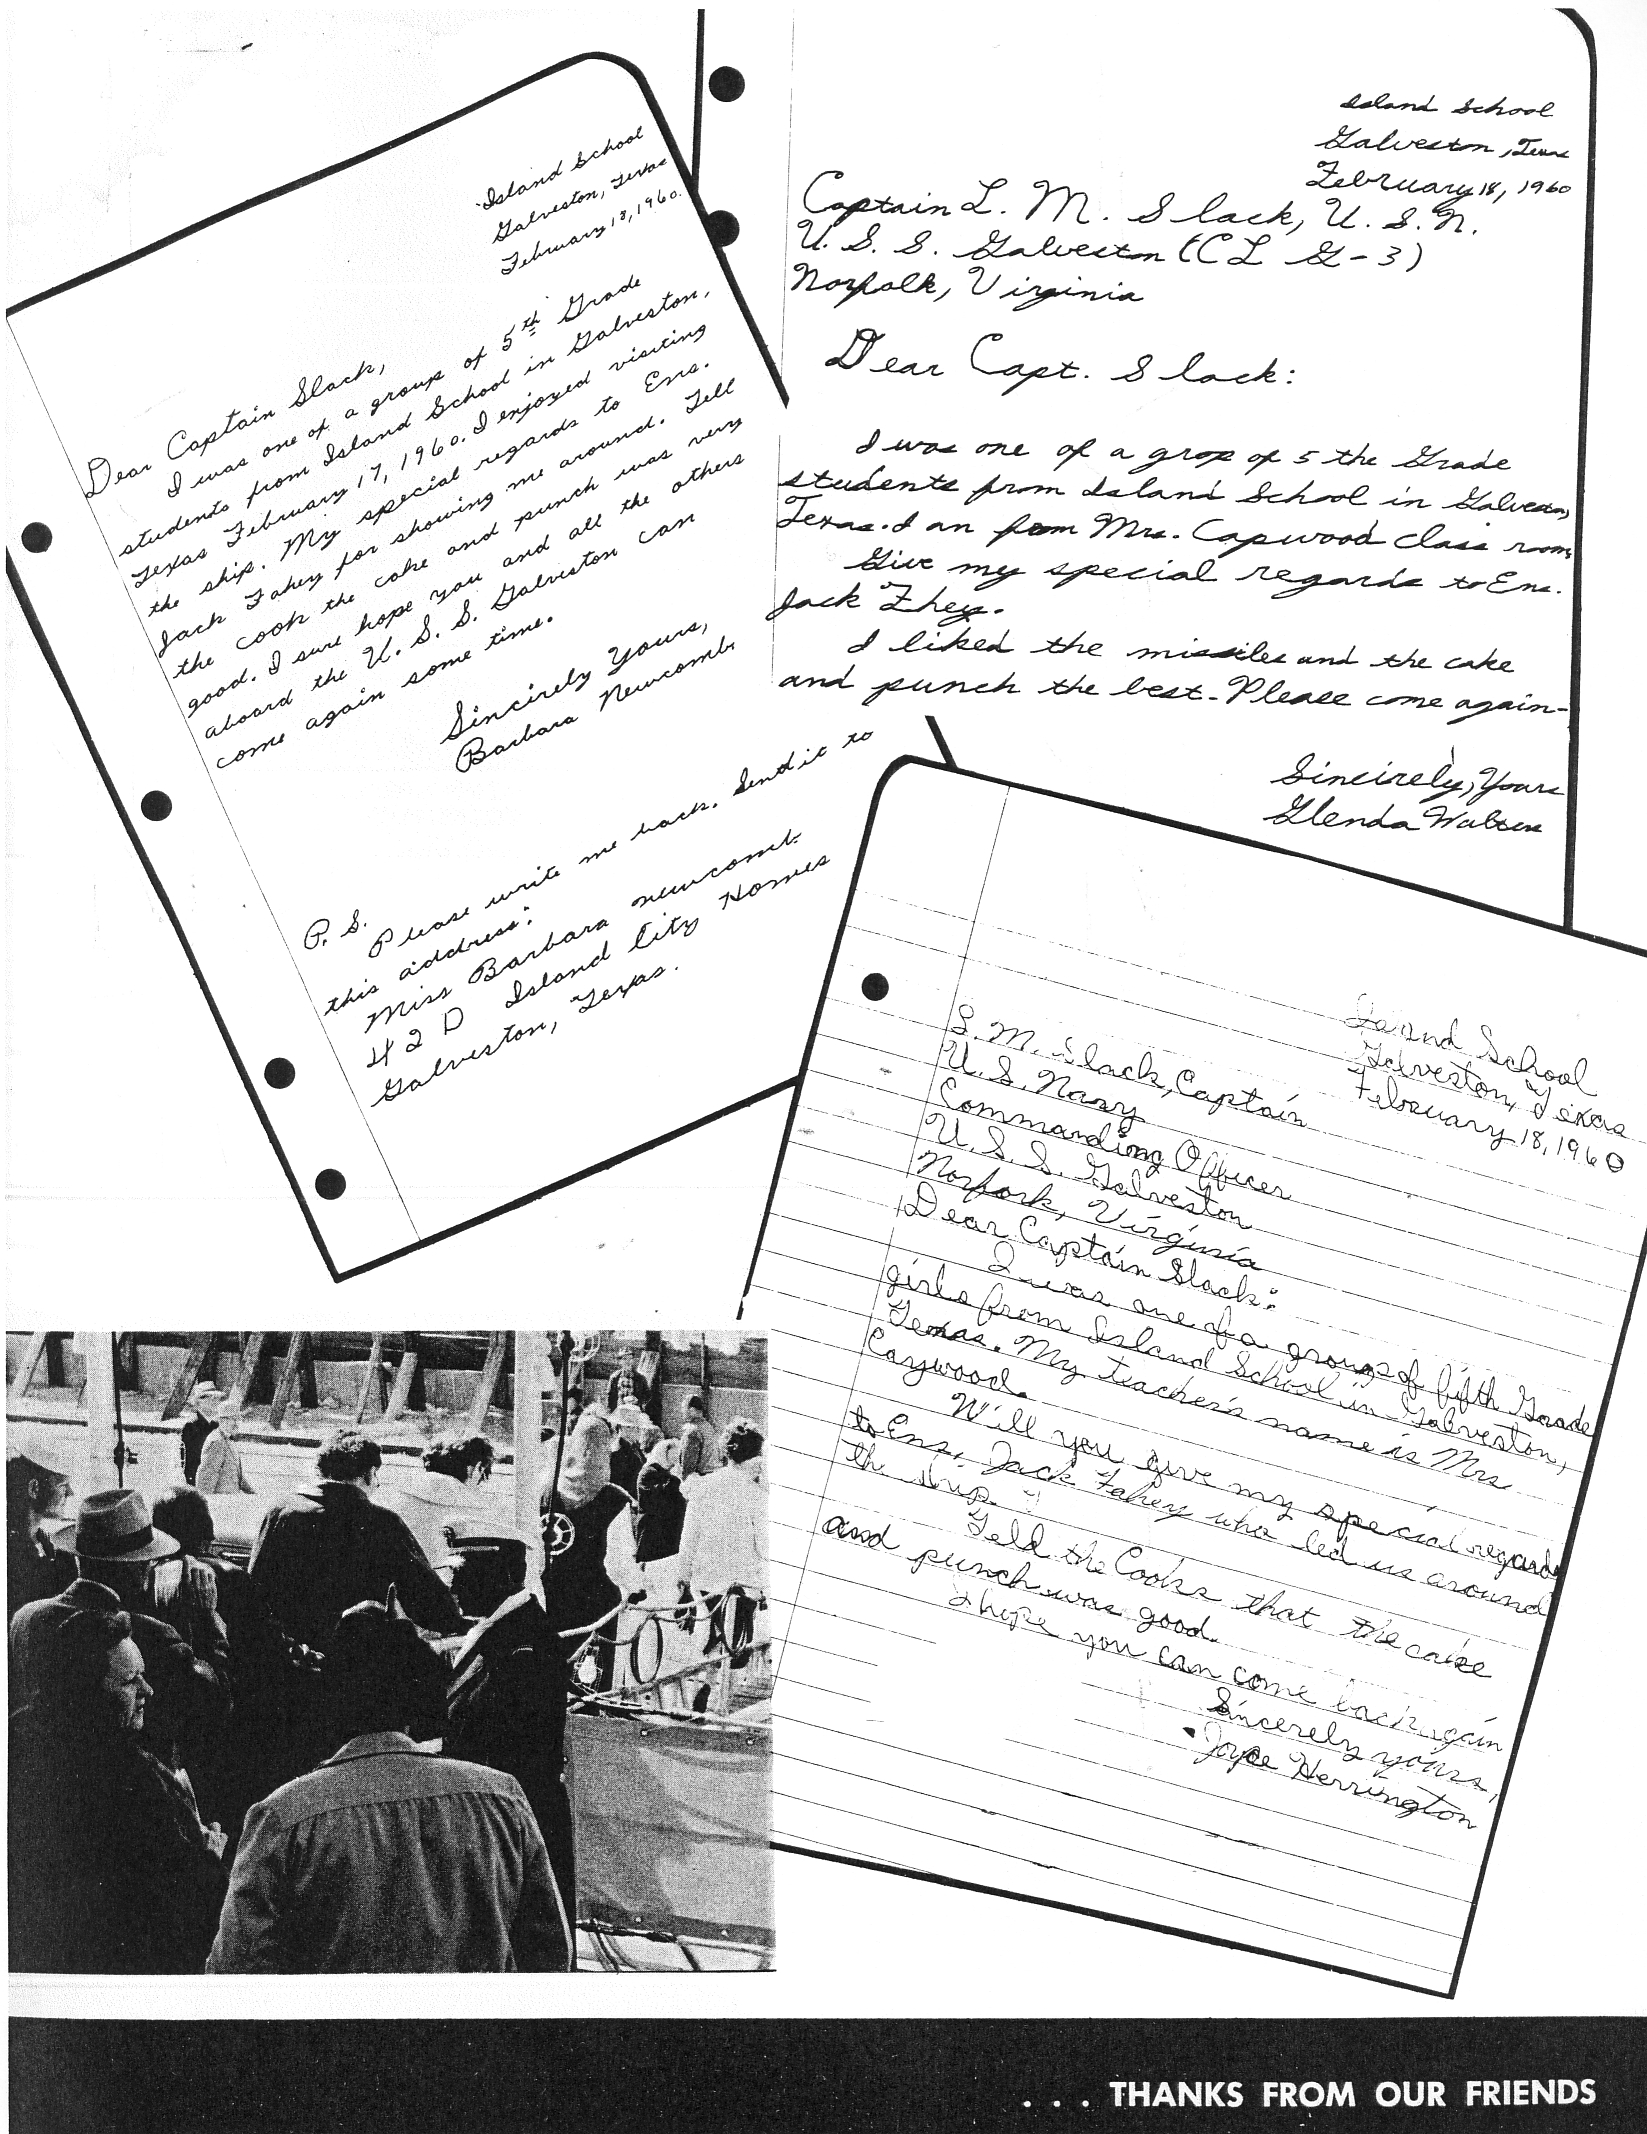 Island School
Galveston, Texas
February 18, 1960.
Dear Captain Slack,
I was one of a group of 5th Grade
students from Island School in Galveston,
Texas February 17, 1960. I enjoyed visiting
the ship. My special regards to Ens.
Jack Fahey for showing me around. Tell
the cook the cake and punch was very
good. I sure hope you and all the others
aboard the U. S. S. Galveston can
come again some time.
Sincirely Yours,
Barbara Newcomb.
P. S.
Please write me back. Send it to
this address:
Miss Barbara newcomb.
42 D Island City Homes
Galveston, Texas.
Island School
Galveston, Texas
February 18, 1960
Captain L. M. Slack, U. S. N.
U. S. S. Galveston (CL G-3)
Norfolk, Virginia
Dear Capt. Slack:
I was one of a grop of 5 the Grade
students from Island School in Galveston,
Texas. I an from Mrs. Capwood class room,
Give my special regards to Ens.
Jack Fhey.
I liked the missiles and the cake
and punch the best. Please come again-
Sincirely, Yours
Glenda Walters
Island School
Galveston, Texas
February 18, 1960
L. M. Slack, Captain
U. S. Navy
Commanding Officer
U. S. S. Galveston
Norfork, Virginia
Dear Captain Slack:
I was one of a groups of fifth Grade
girls from Island School in Galveston,
Texas. My teacher's name is Mrs
Caywood.
Will you give my special regards
to Ens, Jack Fahey who led us around
the ship.
Teld the Cooks that the cake
and punch was good.
I hope you can come back again
Sincerely yours,
Joyce Herrington
. . . THANKS FROM OUR FRIENDS